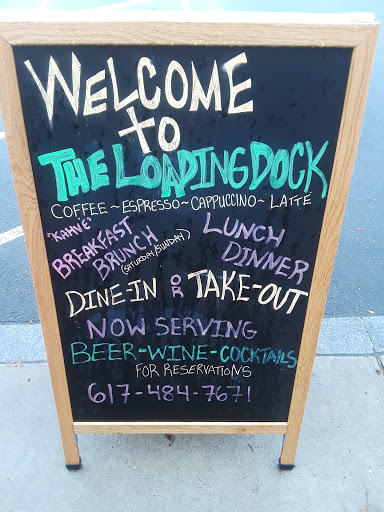 WELCOME
TO
THE LOADING DOCK
COFFEE ~ ESPRESSO ~ CAPPUCCINO ~ LATTÉ
"KAHAVE"
BREAKFAST
BRUNCH
(SATURDAY/SUNDAY)
LUNCH
DINNER
DINE-IN OR TAKE-OUT
NOW SERVING
BEER-WINE-COCKTAILS
FOR RESERVATIONS
617-484-7671